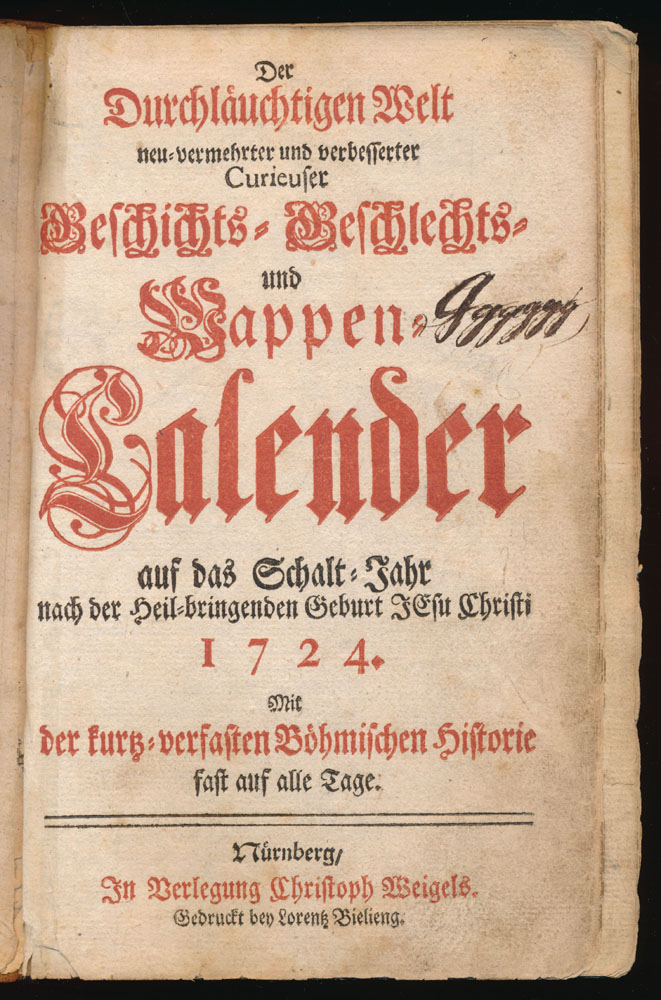 Der
Durchläuchtigen Welt
neu-vermehrter und verbesserter
Curieuser
Geschichts- Geschlechts-
und
Wappen-
Calender
auf das Schalt-Jahr
nach der Heil-bringenden Geburt JEsu Christi
1724.
Mit
der kurtz-verfasten Böhmischen Historie
fast auf alle Tage.
Nürnberg/
In Verlegung Christoph Weigels.
Gedruckt bey Lorentz Bielieng.